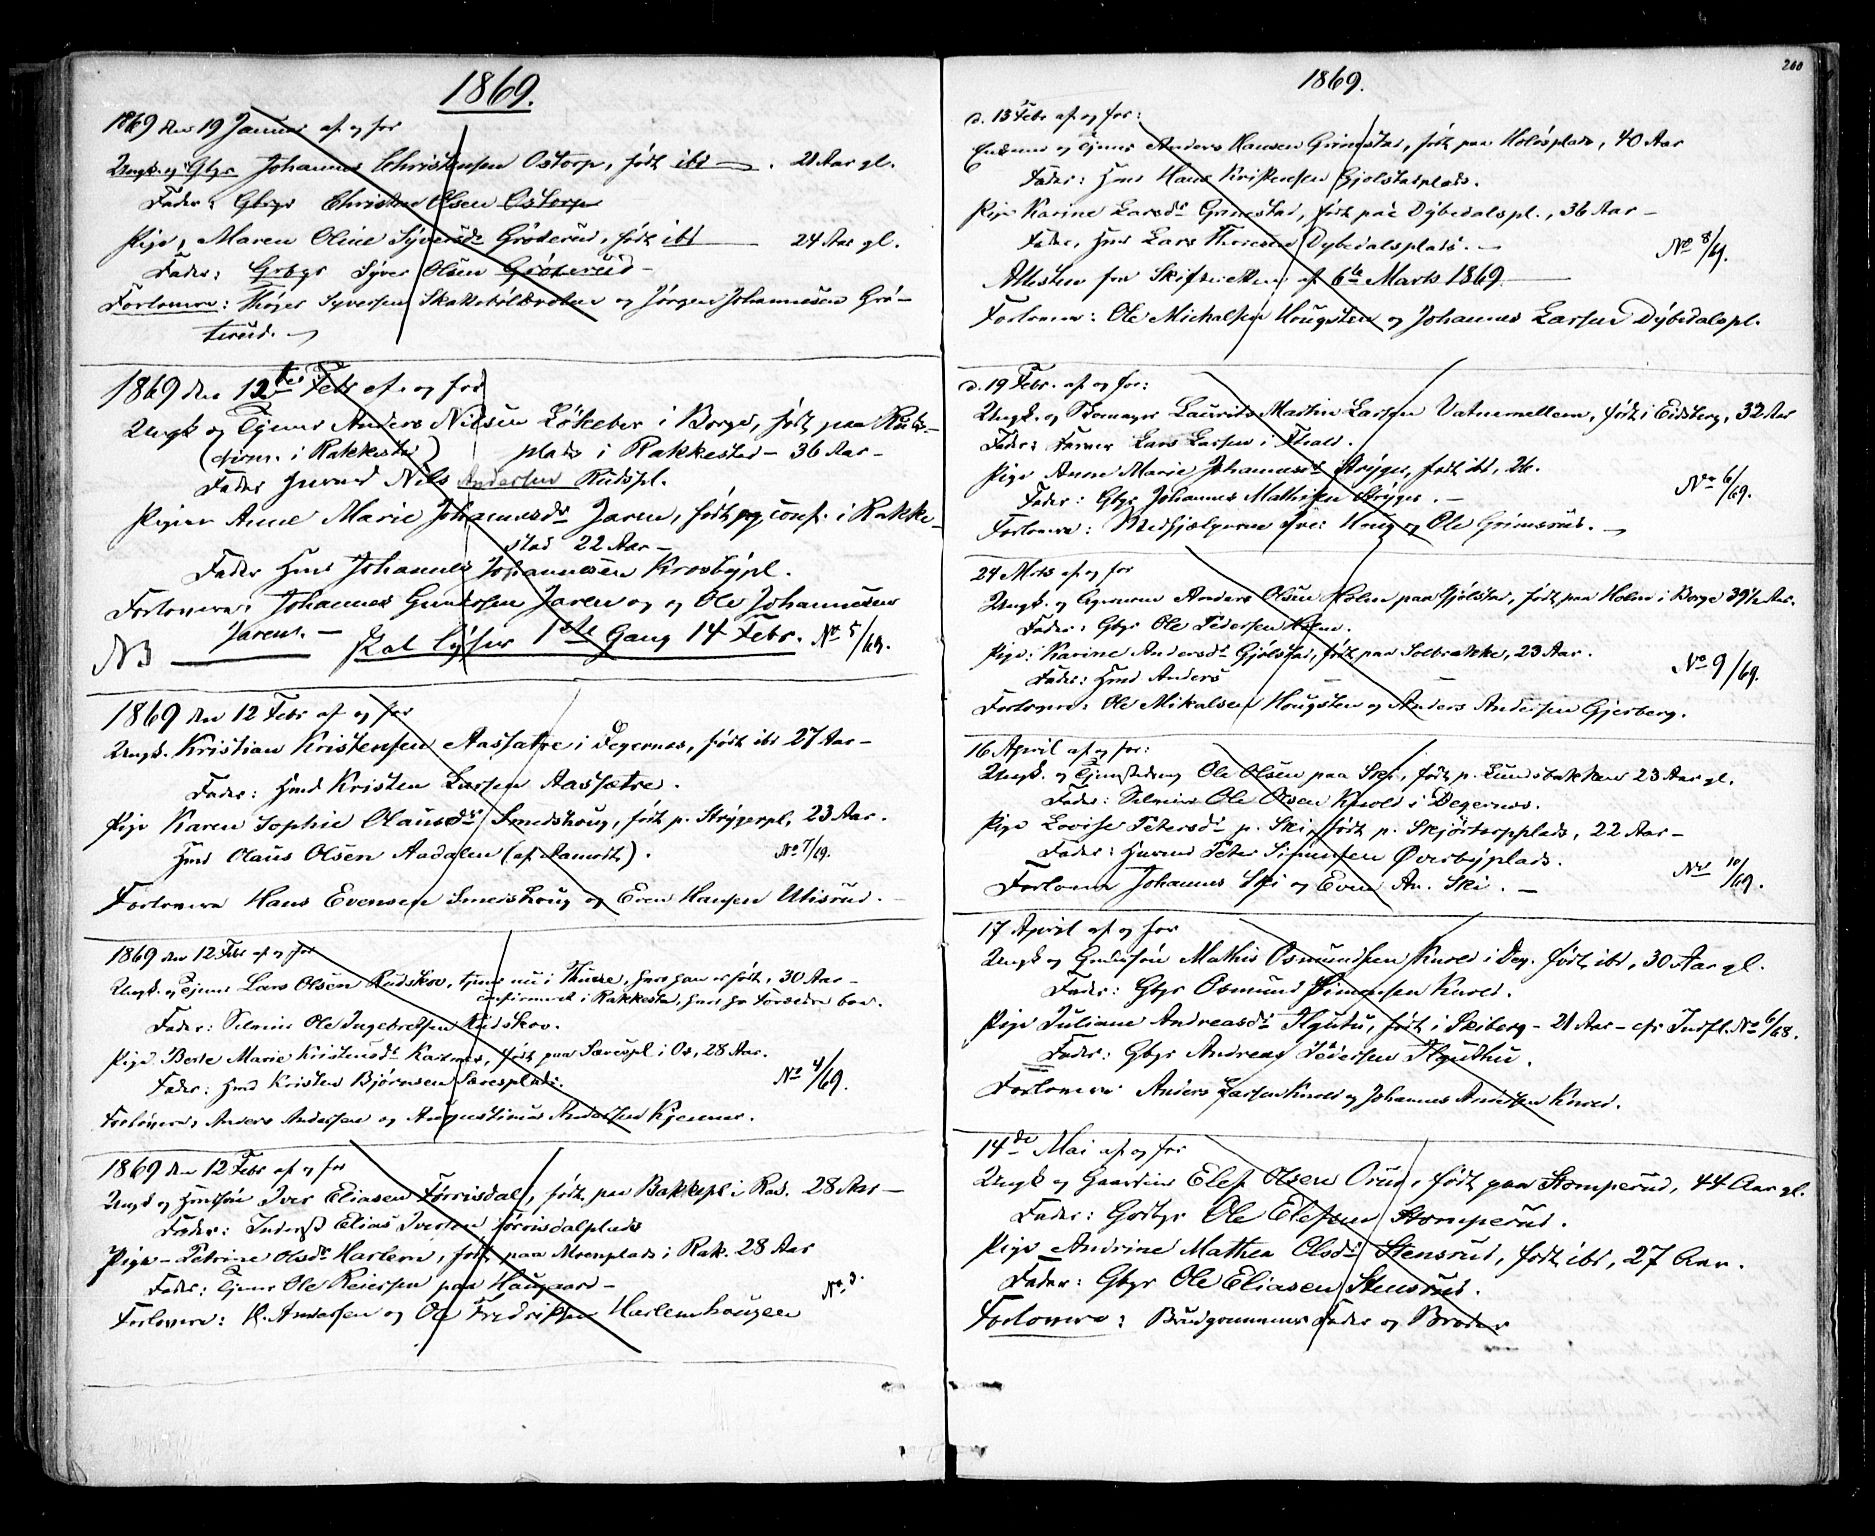 1869.
1869 den 19 Januar af og for
Ungk. og Gbgr Johannes Christensen Ostorp, født ibd. 21 Aar gl.
Fader: Gbgr Christen Olsen Ostorp
Pige, Maren Oline Syversdr Gröterud, født ibd 24 Aar gl.
Fader: Grbgr Syver Olsen Gröterud –
Forlovere: Thöger Syversen Skakkebölbraaten og Jörgen Johannesen Grö-
terud.
1869 den 12te Febr af og for
Ungk og Tjener Anders Nilsen Lökeber i Borge, født paa Ruds-
(firm. i Rakkestad) plads i Rakkestad – 36 Aar –
Fader Husmd Nils Andersen Rudspl.
Pigen Anne Marie Johannesdr Jaren, født og conf. i Rakke-
stad 22 Aar –
Fader Hmd Johannes Johannesen Krosbypl.
Forlovere: Johannes Gundersen Jaren og Ole Johannesen
Jaren. –
NB Skal lyses 1ste Gang 14 Febr. No 5/69.
1869 den 12 Febr af og for
Ungk. Kristian Kristensen Aassætre i Degernes, født ibd 27 Aar –
Fader: Hmd Kristen Larsen Aassætre.
Pige Karen Sophie Olausdr Smedshoug, født p. Strygerpl, 23 Aar.
Hmd Olaus Olsen Aadalen (af Aamodt). No 7/69.
Forlovere Hans Evensen Smedshoug og Even Hansen Utisrud.
1869 den 12 Febr af og for
Ungk. og Tjener Lars Olsen Rudskov, tjener nu i Thune, hvor han er født, 30 Aar –
confirmeret i Rakkestad, hvor hs Forældre bor.
Fader: Selveier Ole Ingebretsen Rudskov.
Pige Berte Marie Kristensdr Kaines, født paa Særespl. i Os, 28 Aar.
Fader: Hmd Kristen Bjørnsen Særesplads. No 4/69.
Forlovere, Anders Andersen og Augustinus Andersen Kjenner.
1869 den 12 Febr af og for
Ungk og Iver Eliasen Förrisdal, født paa Bakkepl i Rak. 28 Aar –
Fader: Inderst Elias Iversen Förrisdalplads
Pige – Petrine Olsdr Harlem, født paa Moenplads i Rak. 28 Aar
Fader: Tjener Ole Reiersen paa Haugaard –
No 3.
Forlovere: K. Andersen og Ole Fredriksen Harlemhougen
200
1869.
d. 13 Febr af og for:
Enkemd og Tjener Anders Hansen Grimstad, født paa Holösplads, 40 Aar
Fader: Hmd Hans Kristensen Gjolstadplads.
Pige Karine Larsdr Grimstad, født paa Dybedalspl., 36 Aar –
Fader, Hmd Lars Thoresen Dybedalsplads. – No 8/69.
Attesten fra Skifteretten af 6te Marts 1869
Forlovere: Ole Michalsen Hougsten og Johannes Larsen Dybedalspl.
d. 19 Febr. af og for:
Ungk. og Skomager Laurits Martin Larsen Vatnemellem, født i Eidsberg, 32 Aar
Fader: Farver Lars Larsen i Fhald.
Pige Anne Marie Johannesdr Stryger, født ibd, 26.
Fader: Gbgr Johannes Mathisen Stryger. – No 6/69.
Forlovere: Medhjælperne Iver Houg og Ole Grimsrud. –
24 Mrts af og for
Ungk. og Anders Olsen Holen paa Gjölstad, født paa Holen i Borge 39½ Aar.
Fader: Gbgr Ole Pedersen Holen.
Pige: Karine Andersdr Gjölstad, født paa Solbrække, 23 Aar.
Fader: Hmd Anders No 9/69.
Forlovere: Ole Mikalsen Hougsten og Anders Andersen Gjerberg.
16 April af og for:
Ungk. og Ole Olsen paa Ski, født p. Lundsbakken 23 Aar gl.
Fader: Selveier Ole Olsen Knold i Degernes.
Pige Lovise Petersdr p. Ski, født p. Skjörtorpplads, 22 Aar –
Fader: Husmd Peter Simensen Øverbyplads.
Forlovere Johannes Ski og Even An. Ski. – No 10/69.
17 April af og for
Ungk og Mathis Osmundsen Knold i Deg. født ibd, 30 Aar gl.
Fader: Gbgr Osmund Simensen Knold.
Pige Juliane Andreasdr Thuthu, født i Skiberg – 21 Aar – cfr Indfl. No 6/68.
Fader: Gbgr Andreas Pedersen Thuthu.
Forlovere: Anders Larsen Knold og Johannes Andersen Knold.
14de Mai af og for
Ungk og Elef Olsen Orud, født paa Stomperud, 44 Aar gl.
Fader: Grdbgr Ole Elefsen Stomperud.
Pige Andrine Mathea Olsdr Stensrud, født ibd, 27 Aar.
Fader: Gbgr Ole Eliasen Stensrud.
Forlovere: Brudgommens Fader og Broder